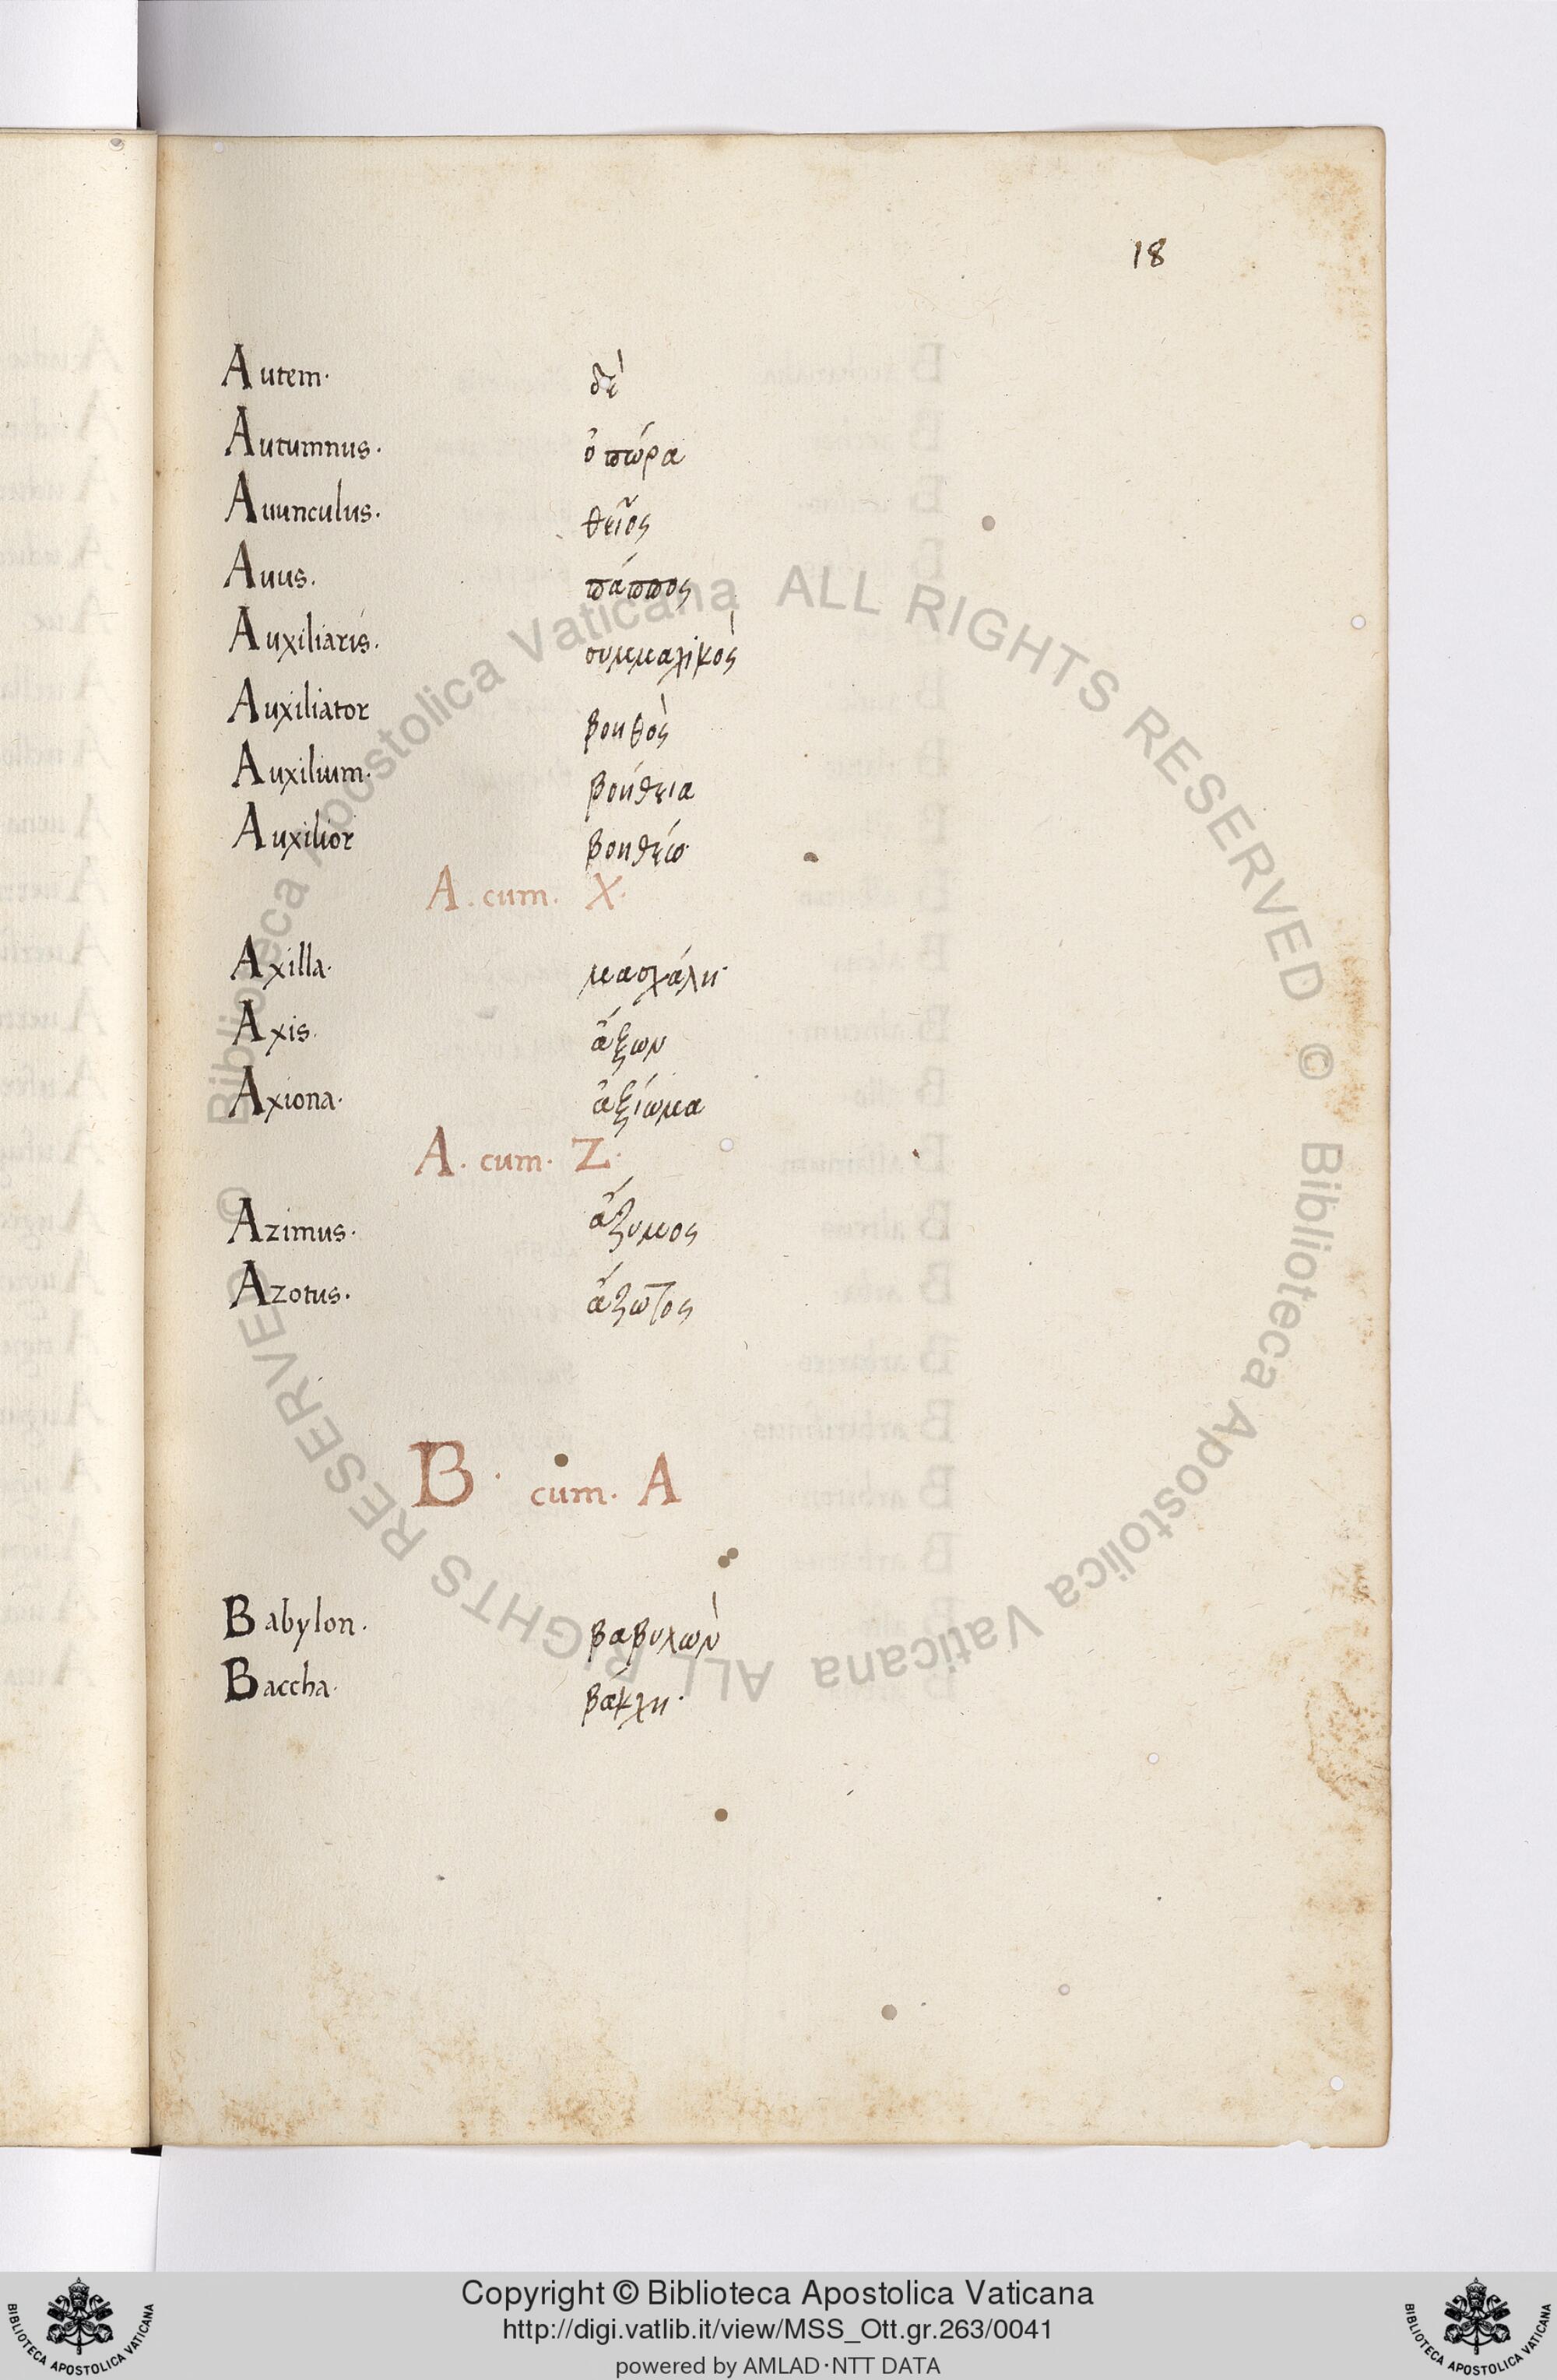 18
Autem. δὲ
Autumnus. ὀπώρα
Auunculus. θεῖος
Auus. πάππος
Auxiliaris. συμμαχικὸς
Auxiliator βοηθὸς
Auxilium. βοήθεια
Auxilior βοηθέω
A. cum. X.
Axilla. μασχάλη.
Axis. ἄξων
Axiona. ἀξίωμα
A. cum. Z.
Azimus. ἄζυμος
Azotus. ἄζωτος
B. cum. A
Babylon. βαβυλὼν
Baccha. βάκχη.
© Biblioteca Apostolica Vaticana ALL RIGHTS RESERVED © Biblioteca Apostolica Vaticana ALL RIGHTS RESERVED
Copyright © Biblioteca Apostolica Vaticana
http://digi.vatlib.it/view/MSS_Ott.gr.263/0041
powered by AMLAD·NTT DATA
BIBLIOTECA APOSTOLICA VATICANA
BIBLIOTECA APOSTOLICA VATICANA